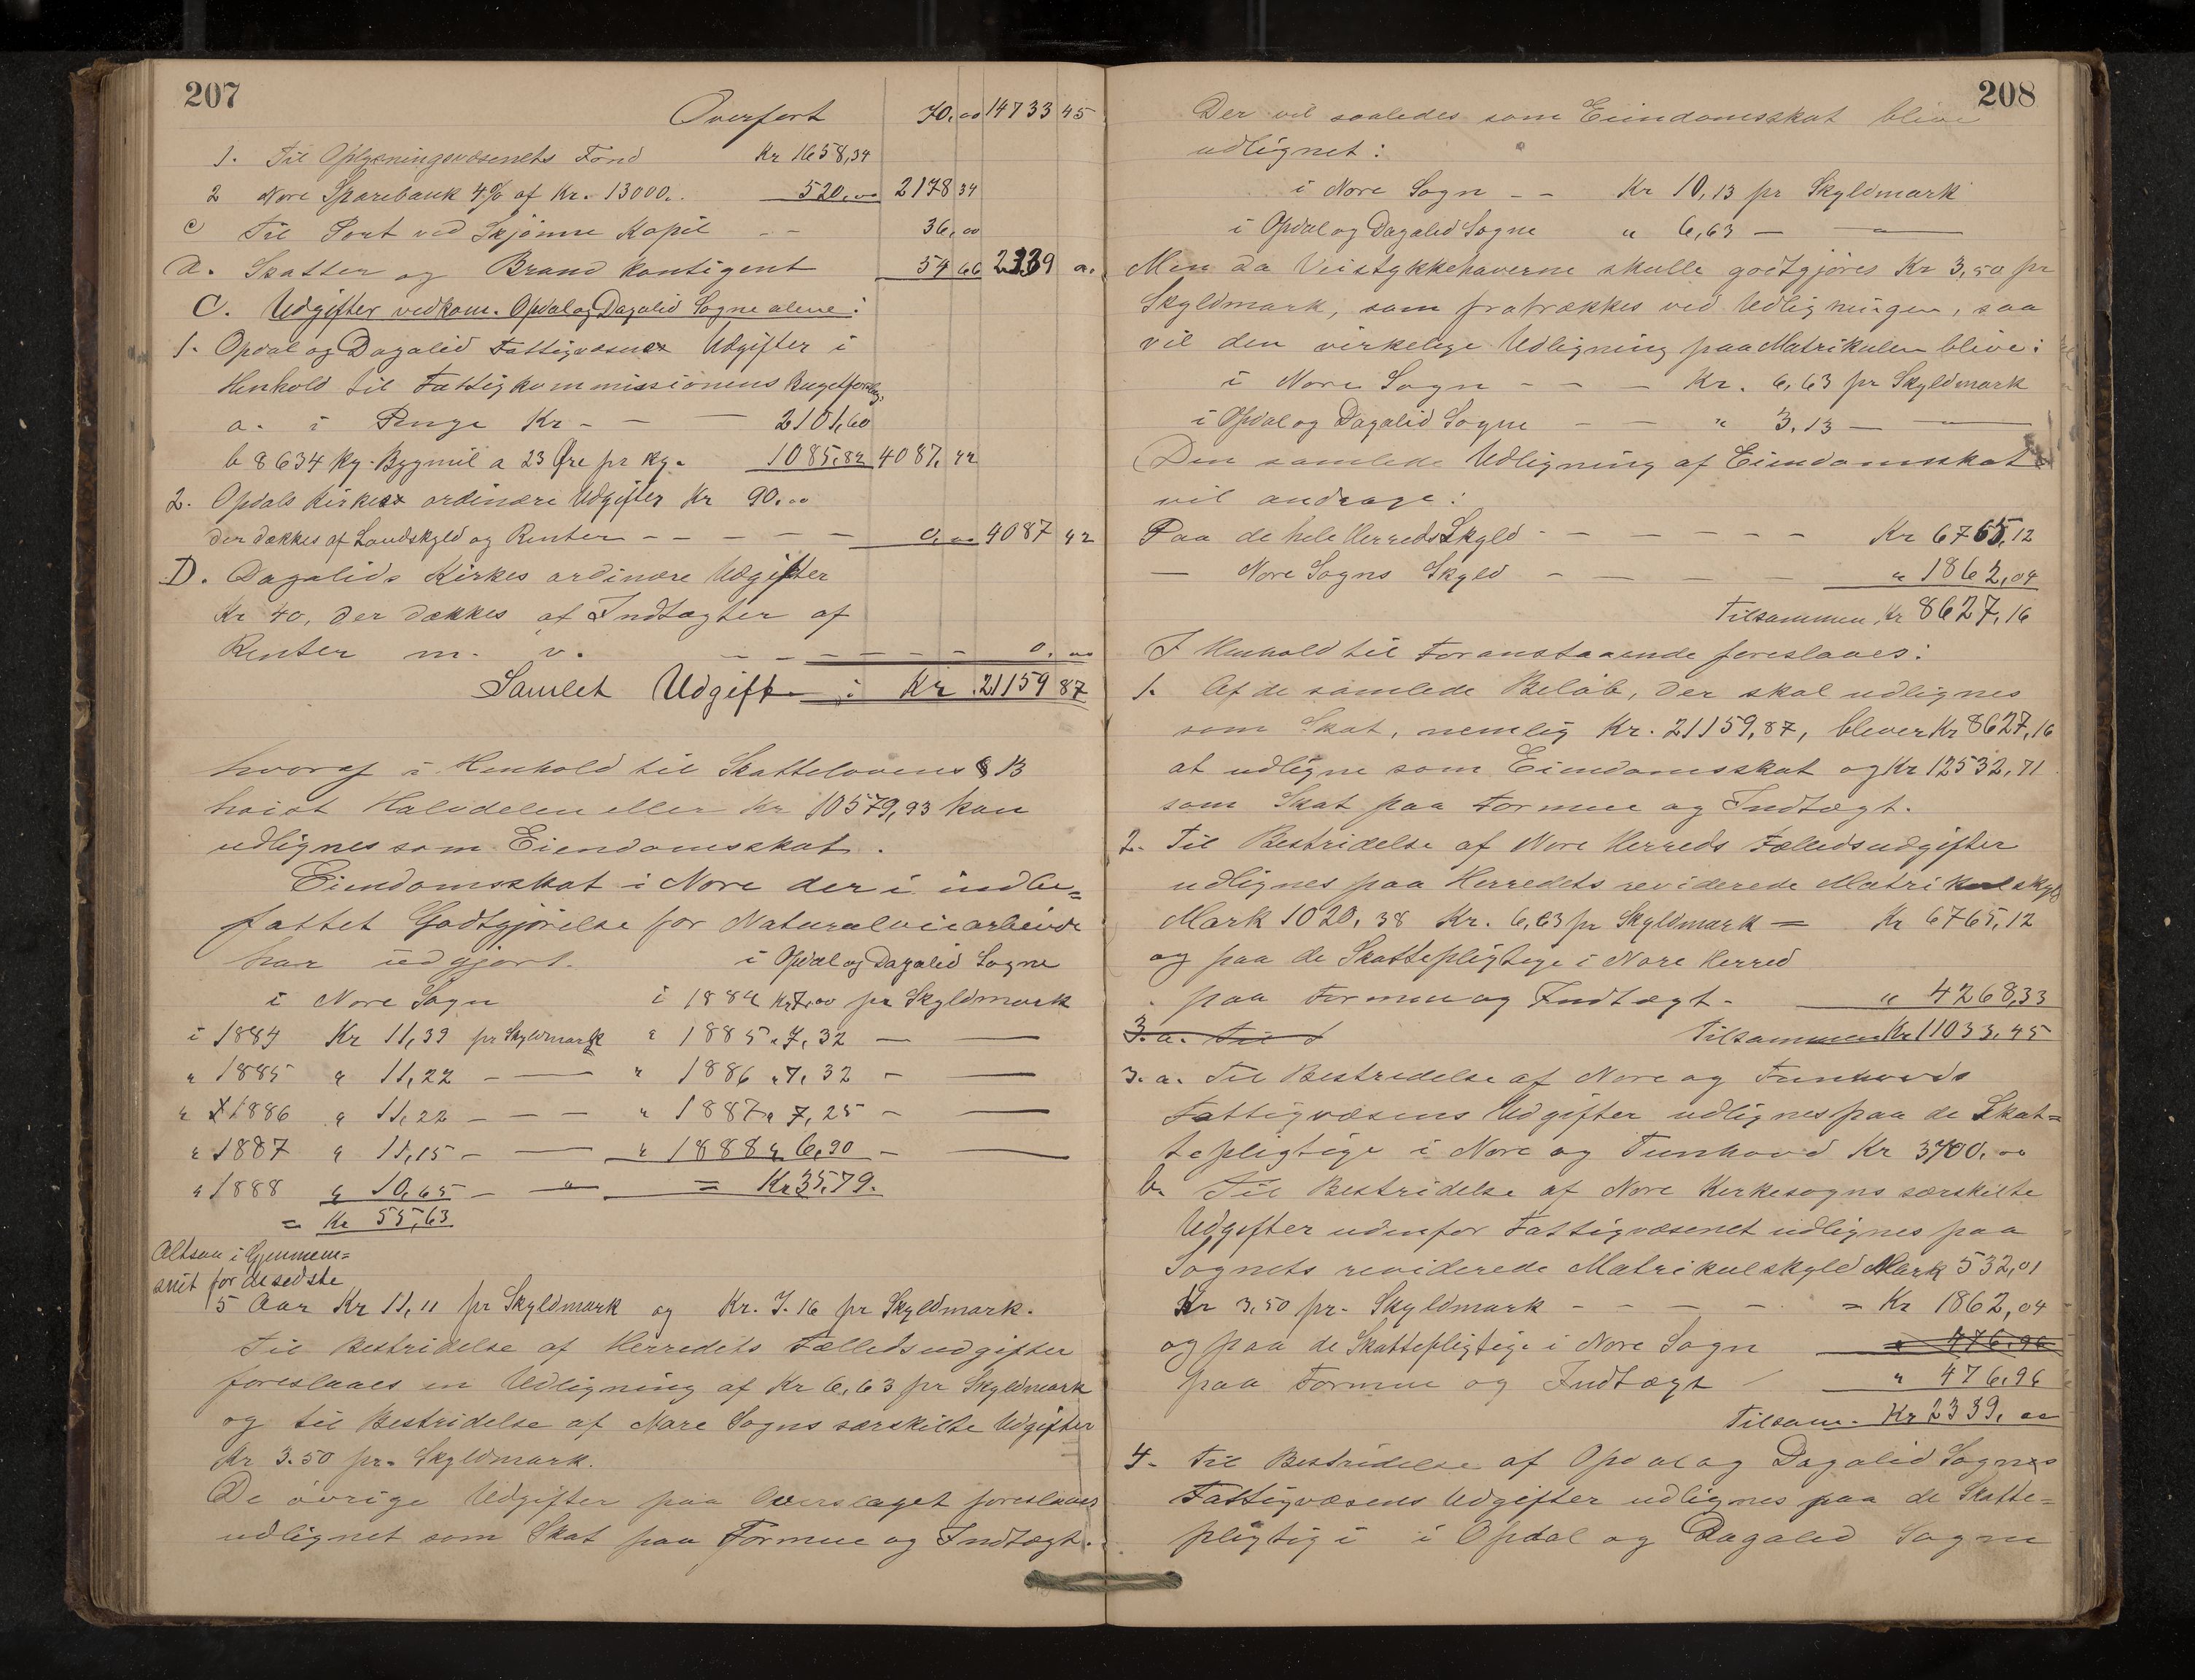 207
Overført 70,00 14733 45
1. Til Oplysningsvæsenets Fond Kr 1658,34
2 Nore Sparebank 4% af Kr. 13000.. 520,00 2178 34
c Til Port ved Skjønne Kapel - - 36,00
d. Skatter og Brand kontigent 54 66 2339 00
C. Udgifter vedkom. Opdal og Dagalid Sogne alene:
1. Opdal og Dagalid Fattigvæsens Udgifter i
Henhold til Fattigkommissionens Bugetforslag.
a. i Penge Kr - — 2101,60
b 8634 kg. Bygmel a 23 Øre pr kg. 1985,82 4087,42
2. Opdals Kirkes ordinære Udgifter Kr 90,00
der dækkes af Landskyld og Renter - - - - - 0,00 4087 42
D. Dagalids Kirkes ordinære Udgifter
Kr 40, der dækkes af Indtægter af
Renter m. v. - - - - - - 0,00
Samlet Udgift : Kr. 21159 87
hvoraf i Henhold til Skattelovens § 13
høist Halvdelen eller Kr 10579,93 kan
udlignes som Eiendomsskat.
Eiendomsskat i Nore deri indbe=
fattet Godtgjørelse for Naturalveiarbeide
har udgjort. i Opdal og Dagalid Sogne
i Nore Sogn i 1884 Kr 7,00 pr Skyldmark
i 1884 Kr 11,39 pr Skyldmark " 1885 " 7,32 — —
" 1885 " 11,22 - — " 1886 " 7,32 - —
" 1886 " 11,22 - - - " 1887 " 7,25 - —
" 1887 " 11,15 - — " 1888 " 6,90 - —
" 1888 " 10,65 - " = Kr 35,79.
= Kr 55,63
Altsaa i Gjennem=
snit for de sidste
5 Aar Kr 11,11 pr Skyldmark og Kr. 7.16 pr Skyldmark.
Til Bestridelse af Herredets Fælledsudgifter
foreslaaes en Udligning af Kr 6,63 pr Skyldmark
og til Bestridelse af Nore Sogns særskilte Udgifter
Kr 3.50 pr. Skyldmark.
De øvrige Udgifter paa Overslaget foreslaaes
udlignet som Skat paa Formue og Indtægt.
208
Der vil saaledes som Eiendomsskat blive
udlignet:
i Nore Sogn - - Kr 10,13 pr Skyldmark
i Opdal og Dagalid Sogne " 6,63 — "
Men da Veistykkehaverne skulle godtgjøres Kr 3,50 pr
Skyldmark, som fratrækkes ved Udligningen, saa
vil den virkelige Udligning paa Matrikulen blive:
i Nore Sogn - - - Kr. 6,63 pr Skyldmark
i Opdal og Dagalid Sogne - - " 3,13 — "
Den samlede Udligning af Eiendomsskat
vil andrage:
Paa de hele Herreds Skyld - - - - - - Kr 6765,12
— Nore Sogns Skyld - - - - " 1862,04
Tilsammen Kr 8627,16
I Henhold til Foranstaaende foreslaaes:
1. Af de samlede Beløb, der skal udlignes
som Skat, nemlig Kr. 21159,87, bliver Kr 8627,16
at udligne som Eiendomsskat og Kr 12532,71
som Skat paa Formue og Indtægt.
2. Til Bestridelse af Nore Herreds Fælledsudgifter
udlignes paa Herredets reviderede Matrikulskyld
Mark 1020,38 Kr. 6,63 pr Skyldmark = Kr 6765,12
og paa de Skattepligtige i Nore Herred
paa Formue og Indtægt - " 4268,33
3. a. Til Tilsammen Kr 11033,45
3. a. Til Bestridelse af Nore og Tunhovds
Fattigvæsens Udgifter udlignes paa de Skat=
tepligtige i Nore og Tunhovd Kr 3700,00
b. Til Bestridelse af Nore Kirkesogns særskilte
Udgifter udenfor Fattigvæsenet udlignes paa
Sognets reviderede Matrikulskyld Mark 532,01
Kr 3,50 pr. Skyldmark - - - - = Kr 1862,04
og paa de Skattepligtige i Nore Sogn " 476,96
paa Formue og Indtægt " 476,96
Tilsam. Kr 2339,00
4. Til Bestridelse af Opdal og Dagalid Sognes
Fattigvæsens Udgifter udlignes paa de Skatte=
pligtige i Opdal og Dagalid Sogne